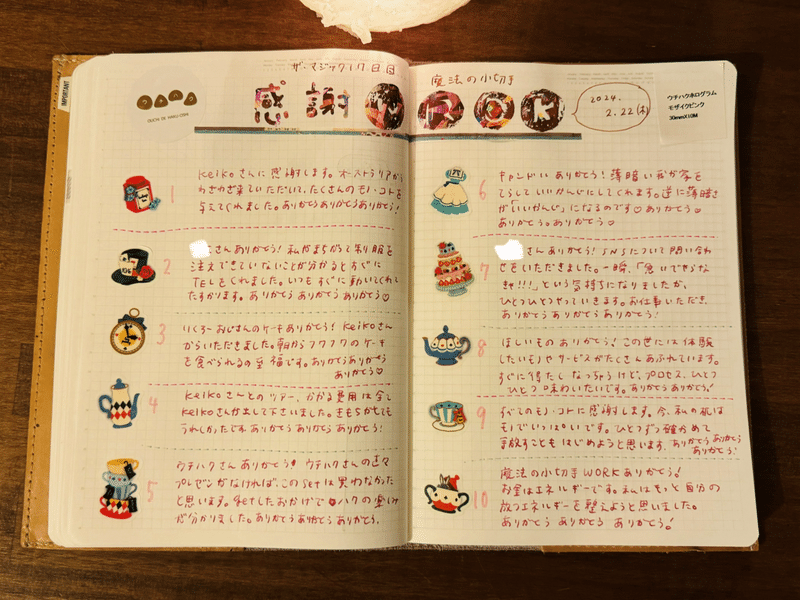 ザ・マジック17日目
感謝WORK
IMPORTANT
1
Keikoさんに感謝します。オーストラリアから
わざわざ来ていただいて、たくさんのモノ・コトを
与えてくれました。ありがとうありがとうありがとう!
2
さんありがとう! 私がまちがって
注文できていないことが分かるとすぐに
TELをくれました。いつもすぐに動いてくれて
たすかります。ありがとうありがとうありがとう♡
3
りくろーおじさんのケーキありがとう! Keikoさん
からいただきました。朝からフワフワのケーキ
を食べられるの至福です。ありがとうありがとう
ありがとう♡
4
Keikoさんとのツアー、かかる費用は全て
Keikoさんが出して下さいました。きもちがとても
うれしかったです ありがとう ありがとう ありがとう!
5
ウチハクさん ありがとう! ウチハクさんの
プレゼンがなければ、このsetは買わなかった
と思います。getしたおかげで ハクの
が分かりました。ありがとう ありがとう ありがとう。
魔法の小切手
2024.
2.22(木)
ウチハクホログラム
モザイクピンク
30mmX10M
6
ありがとう! 薄暗い我が家を
てらしていいかんじにしてくれます。逆に薄暗さ
が「いいかんじ」になるのです♡ ありがとう♡
ありがとう。ありがとう♡
7
さんありがとう! SNSについて問い合わ
せをいただきました。一瞬、「急いでやらな
きゃ!!!」という気持ちになりましたが、
ひとつひとつやっていきます。お仕事いただき
ありがとう ありがとう ありがとう!
8
ほしいもの ありがとう! この世には体験
したいモノやサービスがたくさんあふれています。
すぐに得たく なっちゃうけど、プロセス、ひとつ
ひとつ味わいたいです。ありがとう ありがとう!
9
すべてのモノ・コトに感謝します。今、私の机は
モノでいっぱいです。ひとつずつ確かめて
手放すことも はじめようと思います。ありがとう ありがとう
ありがとう!
10
魔法の小切手WORKありがとう!
お金はエネルギーです。私はもっと自分の
放つエネルギーを整えようと思いました。
ありがとう ありがとう ありがとう!